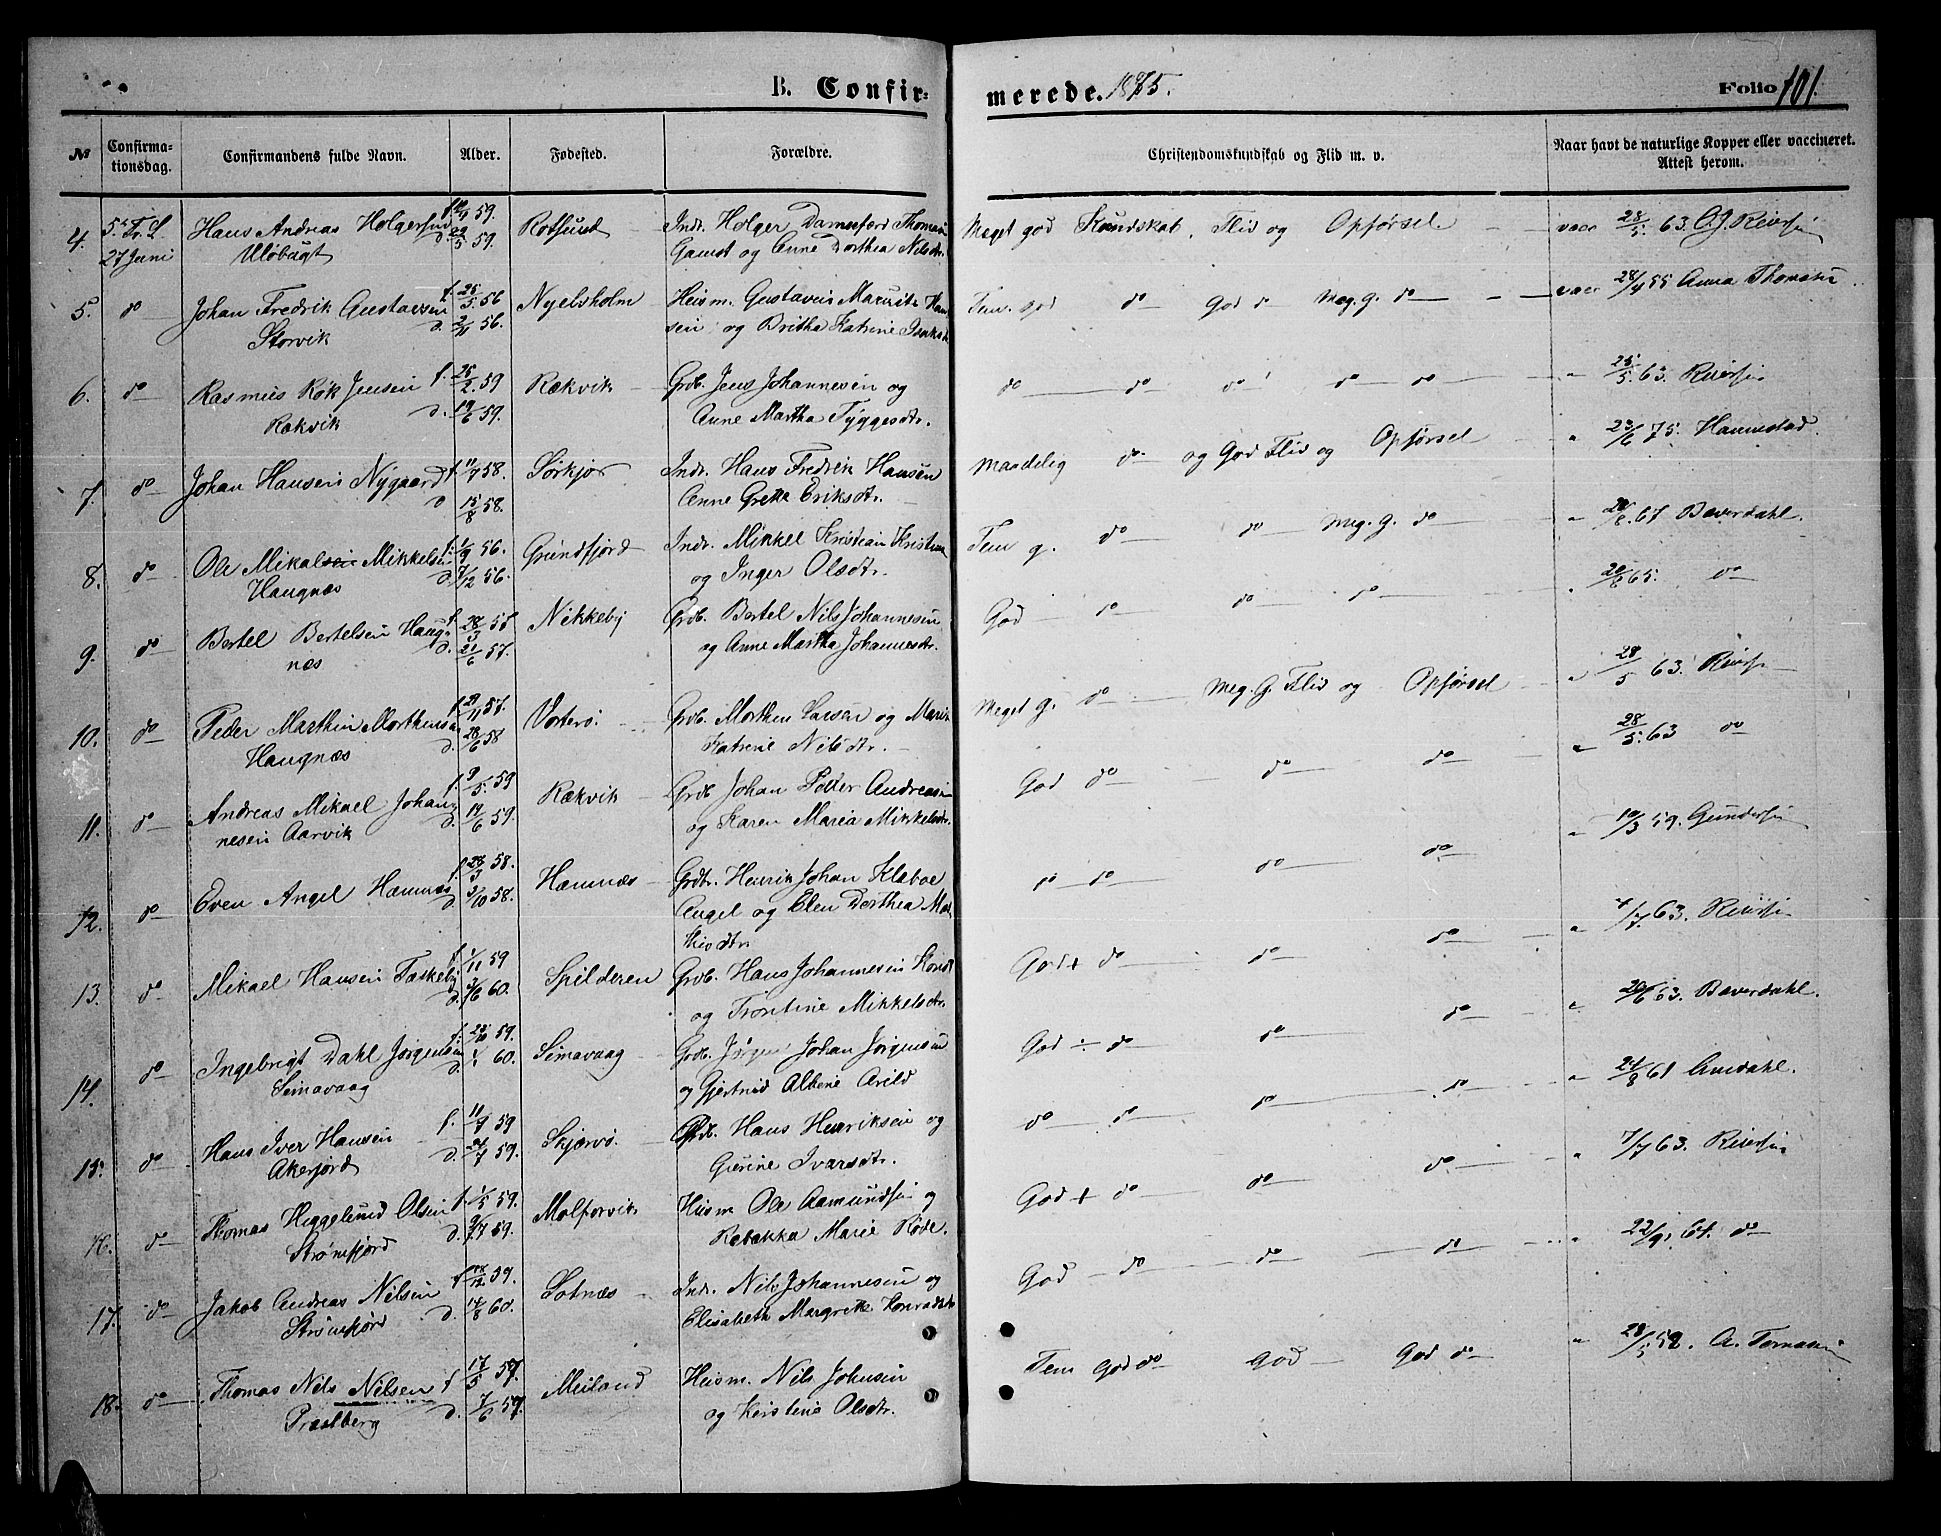 B. Confir- merede. 1875. Folio 101.
№ Confirmationsdag. Confirmandens fulde Navn. Alder. Fødested. Forældre. Christendomskundskab og Flid m. v. Naar havt de naturlige Kopper eller vaccineret. Attest herom.
4. 27 Juni Hans Andreas Holgersen f. 59. Rotsund Indr. Holger Thomas Meget god Kundskab, Flid og Opførsel vacc 28/5 63. Reiersen
d. 29/5 59. Gamst og Anne Dorthea Nilsdtr.
5. do Johan Fredrik Gustavsen f. 25/5 56 Nyelvholm Husm. Gustavus Mauritz Han Tem. god do God do Meg. g. do vacc 28/4 55 Anna Thomasen
Storvik d. 2/11 56. sen og Britha Katrine Isaksd
6. do Rasmus Rök Jensen f. 25/2 59 Rækvik Grdb. Jens Johannesen og do do do do do " 25/5 63. Reiersen
Rækvik d. 19/6 59. Anne Martha Tygesdtr.
7. do Johan Hansen Nygaard f. 11/7 58. Sørkjor Indr. Hans Fredrik Hansen Maadelig do og God Flid og Opførsel " 23/6 75. Hannestad.
d 15/8 58. Anne Grethe Eriksdtr.
8. do Ole Mikalsen Mikkelsen f. 1/9 56. Grundfjord Indr. Mikkel Kristian Kristian Tem g. do do Meg. g. do " 67 Bæverdahl.
Haugnæs d. 7/12 56. og Inger Olsdtr.
9. do Bertel Bertelsen Haug- f. 28/3 57 Nikkeby Grdb. Bertel Nils Johannesen God do do do " 20/8 65. do
næs d. 21/6 57. og Anne Martha Johannesdtr.
10. do Peder Marthin Morthensen f. 9/11 57. Vorterø Grdb. Morthen Larsen og Marie Meget g. do Meg. G. Flid og Opførsel " 28/5 63. Reiersen
Haugnæs d. 28/6 58 Katrine Nilsdtr.
11. do Andreas Mikael Johan- f. 9/5 59 Rækvik Grdb Johan Petter Andreasen God do do do " 28/5. 63 do
nesen Aarvik d. 19/6 59. og Karen Maria Mikkelsdtr.
12. do Even Angel Hamnæs f. 28/3 58. Hamnæs Grdbr. Henrik Johan Klaboe do do do do " 19/3 59. Gundersen
d. 3/10 58. Angel og Elen Dorthea Ma
thisdtr.
13. do Mikael Hansen Taskeby f. 1/11 59 Spilderen Grdb. Hans Johannesen God + do do do " 7/7 63. Reiersen
d. 3/6 60. og Frontine Mikkelsdtr.
14. do Ingebrigt Dahl Jørgensen f. 59. Simavaag Grdb. Jørgen Johan Jørgensen God ÷ do do do " 20/6 63. Bæverdahl.
Simavaag d. 60. og Gjertrud Albine Arild
15. do Hans Iver Hansen f. 11/9 59 Skjærvø Grdb. Hans Henriksen og do do do do " 24/8 61 Amdahl.
Akerfjord d. 59. Gurine Ivarsdtr.
16. do Thomas Heggelund Olsen f. 1/5 59. Molforvik Husm Ole Aamundsen og God + do do do " 7/7 63. Reiersen
Strømfjord d. 9/7 59. Rebekka Marie Røde.
17. do Jakob Andreas Nilsen f. 12 59. Sotnæs Indr. Nils Johannesen og God do do do " 22/9. 61. do
Strømfjord d. 14/8 60. Elisabeth Margrethe Konradsdtr
18. do Thomas Nils Nilsen f 17/5 57. Meiland Husm. Nils Johnsen Tem god do God God do " 28/5 59. A. Tomasen
Præstberg d. 7/6 57. og Kirstine Olsdtr.